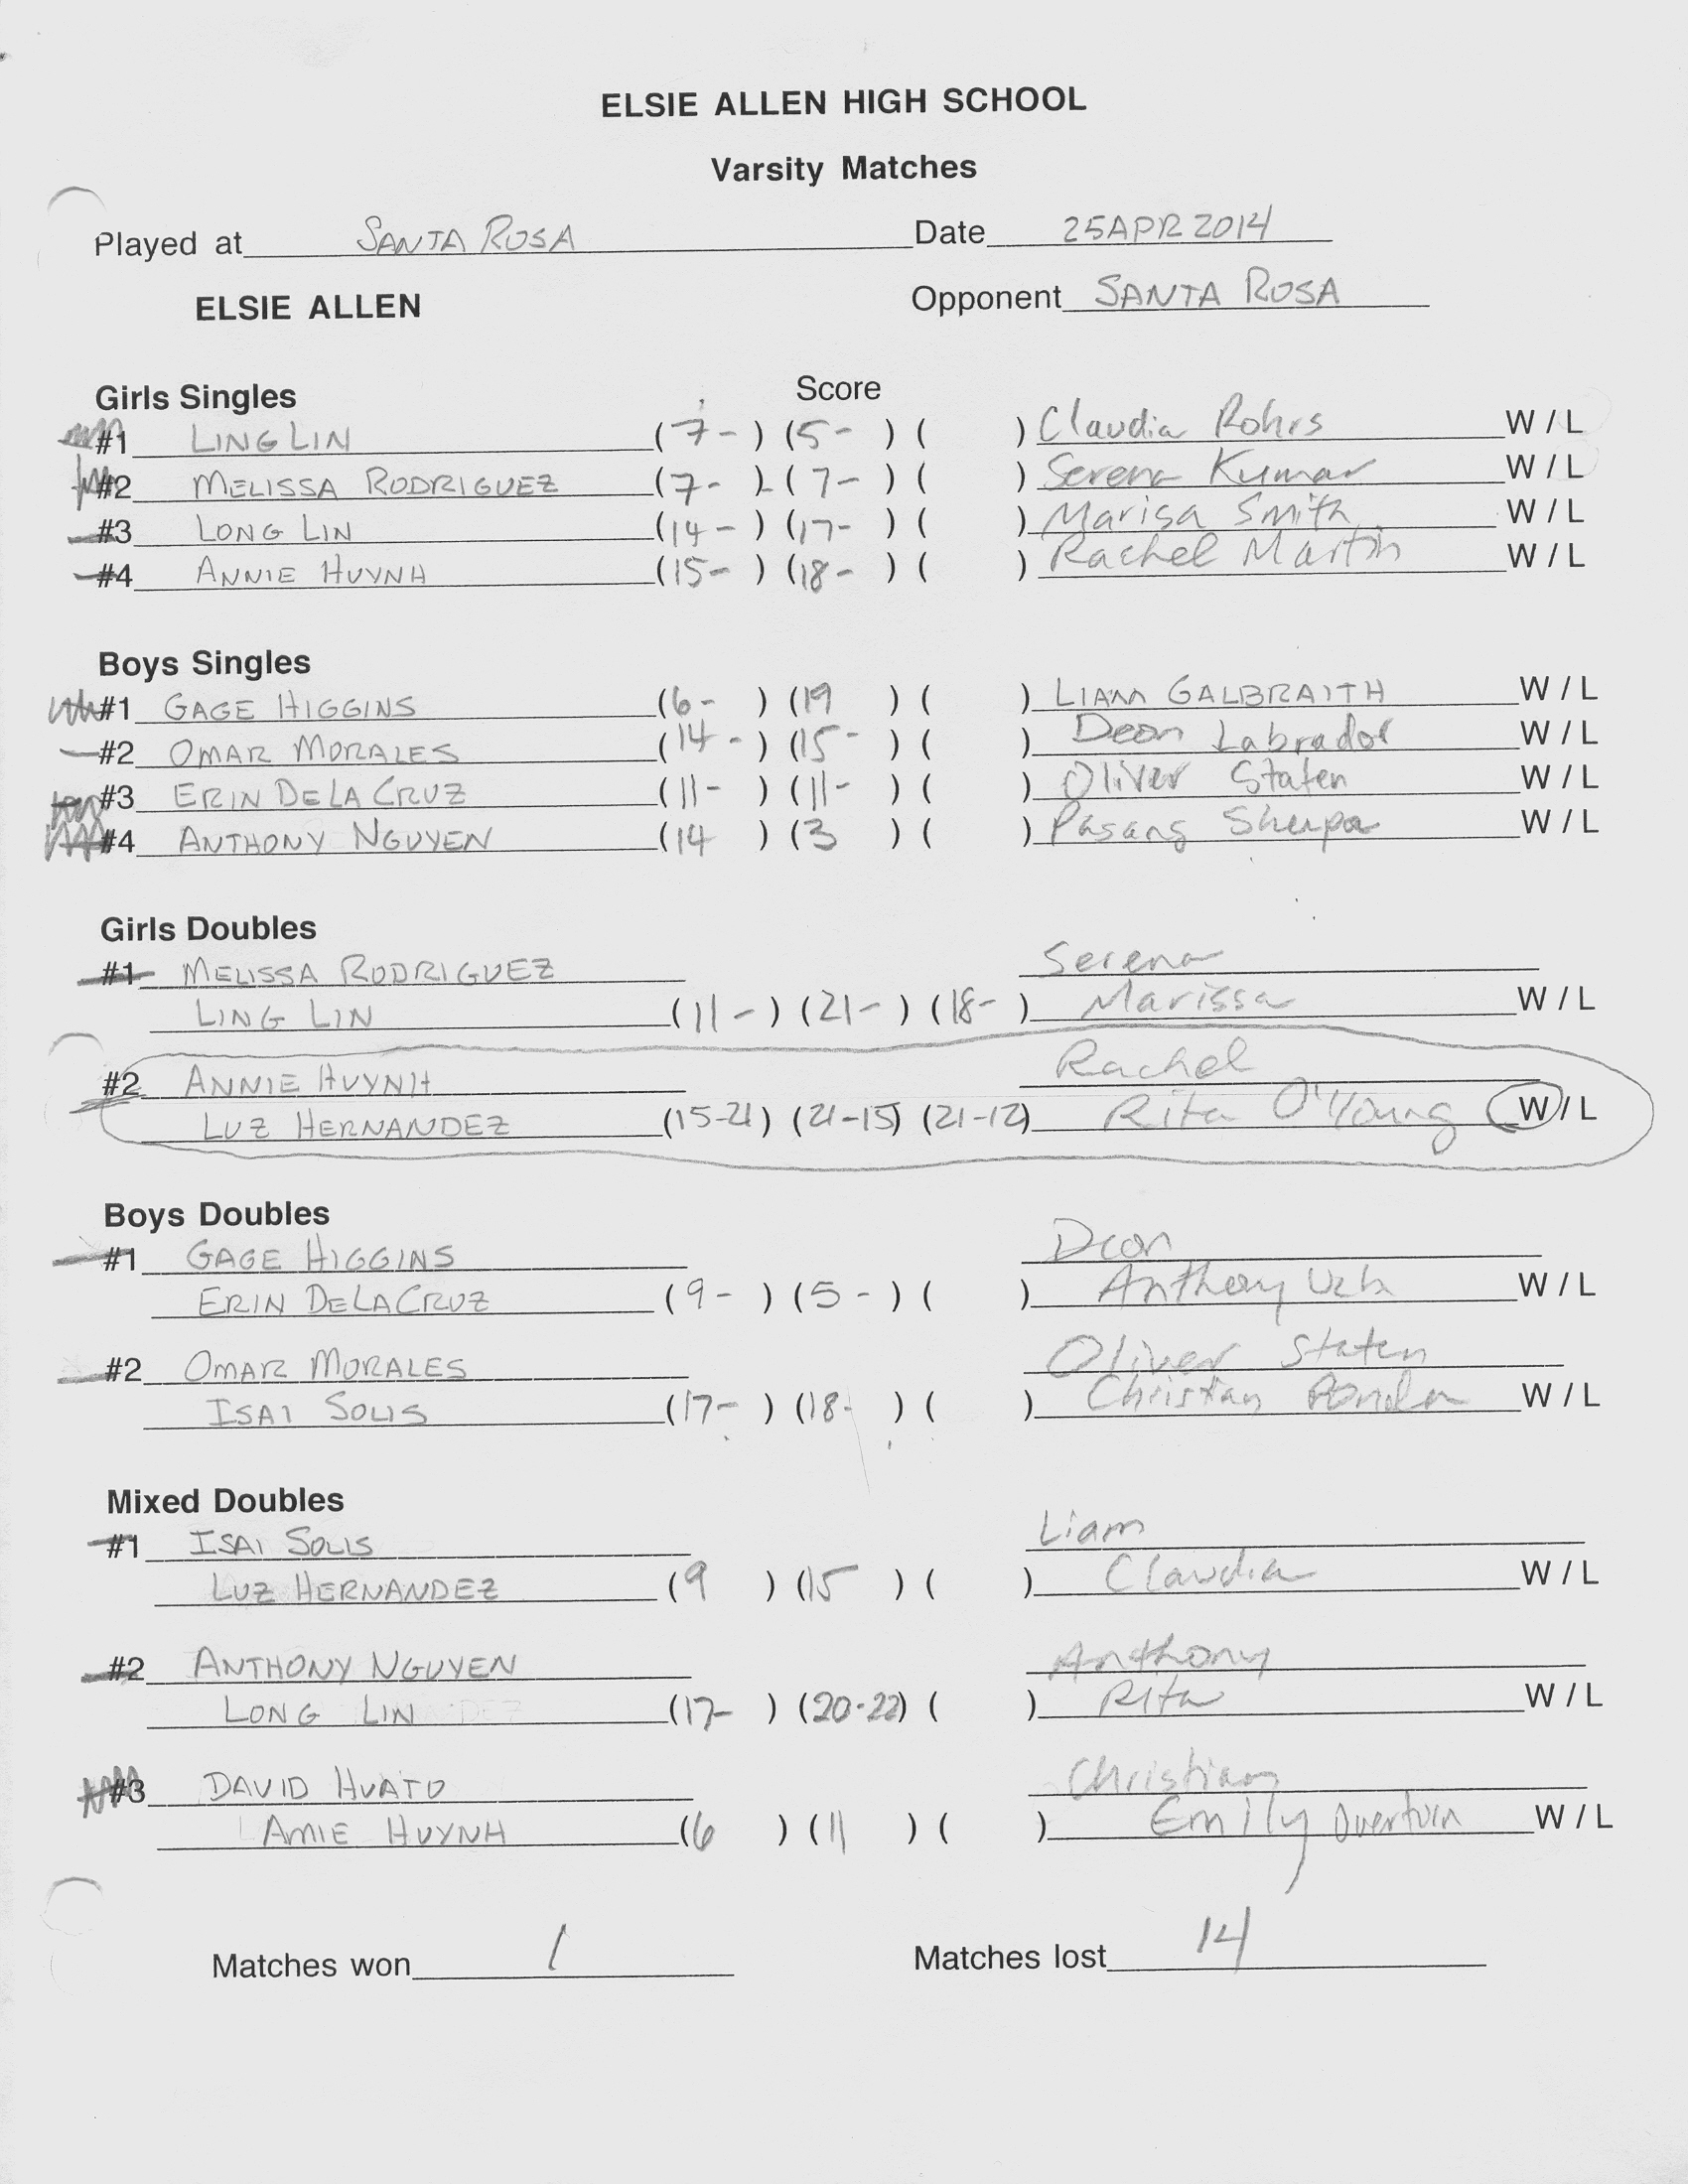 ELSIE ALLEN HIGH SCHOOL
Varsity Matches
Played at SANTA ROSA Date 25APR2014
ELSIE ALLEN Opponent SANTA ROSA
Girls Singles Score
#1 LING LIN (7- ) (5- ) ( ) Claudia Rohrs W / L
#2 MELISSA RODRIGUEZ (7- ) (7- ) ( ) Serena Kumar W / L
#3 LONG LIN (14- ) (17- ) ( ) Marisa Smith W / L
#4 ANNIE HUYNH (15- ) (18- ) ( ) Rachel Martin W / L
Boys Singles
#1 GAGE HIGGINS (6- ) (19 ) ( ) LIAM GALBRAITH W / L
#2 OMAR MORALES (14- ) (15- ) ( ) Deon Labrador W / L
#3 ERIN DELA CRUZ (11- ) (11- ) ( ) Oliver Staten W / L
#4 ANTHONY NGUYEN (14 ) (3 ) ( ) Pasang Sherpa W / L
Girls Doubles
#1 MELISSA RODRIGUEZ Serena
LING LIN (11- ) (21- ) (18- ) Marissa W / L
#2 ANNIE HUYNH Rachel
LUZ HERNANDEZ (15-21) (21-15) (21-12) Rita O'Young W / L
Boys Doubles
#1 GAGE HIGGINS Deon
ERIN DELACRUZ (9- ) (5- ) ( ) Anthony W / L
#2 OMAR MORALES Oliver Staten
ISAI SOLIS (17- ) (18- ) ( ) Christian W / L
Mixed Doubles
#1 ISAI SOLIS Liam
LUZ HERNANDEZ (9 ) (15 ) ( ) Claudia W / L
#2 ANTHONY NGUYEN Anthony
LONG LIN (17- ) (20-22) ( ) Rita W / L
#3 DAVID HUATO Christian
AMIE HUYNH (6 ) (11 ) ( ) Emily Overturn W / L
Matches won 1 Matches lost 14